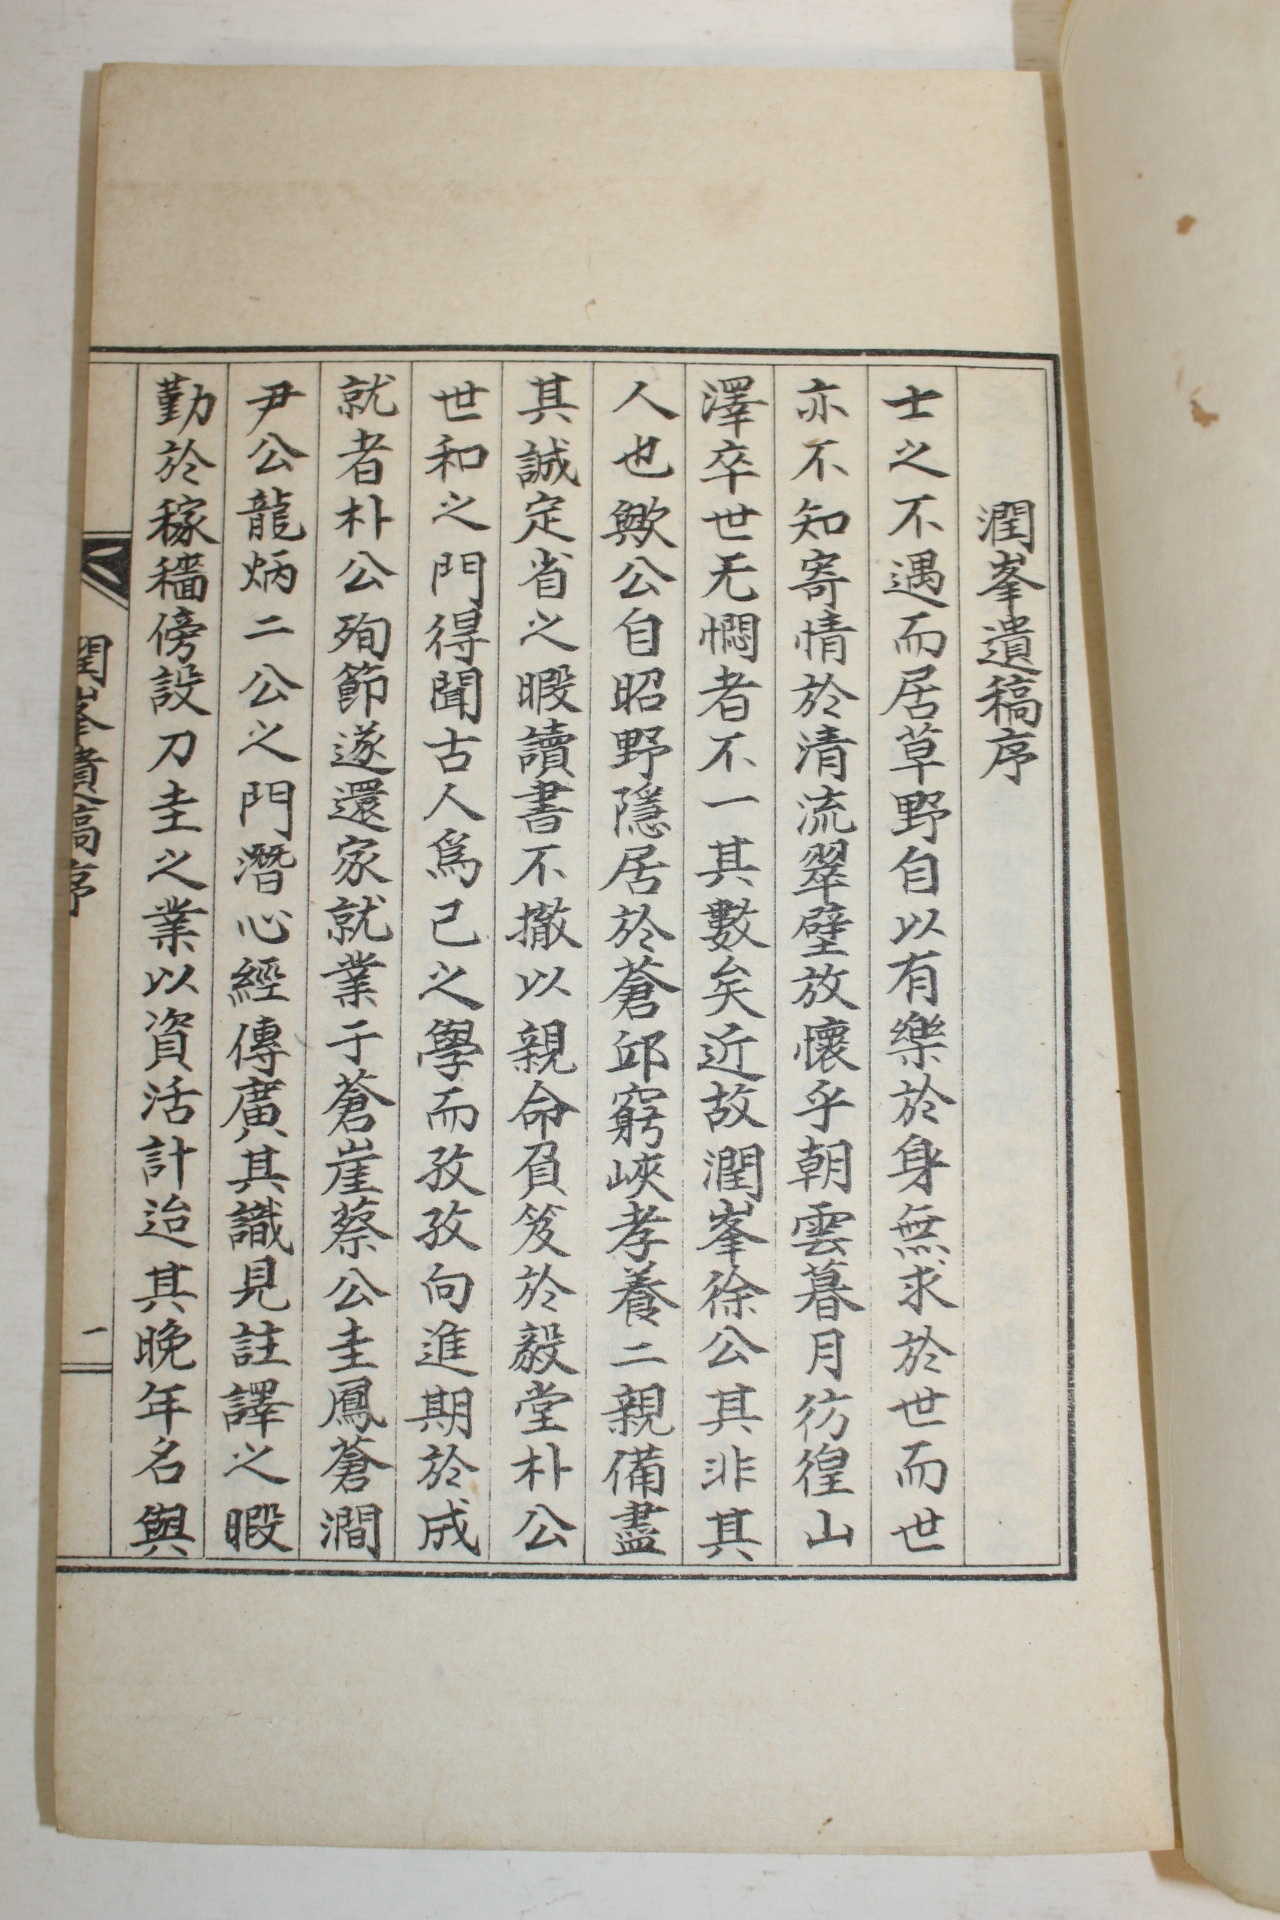 潤峯遺稿序
士之不遇而居草野自以有樂於身無求於世而世
亦不知寄情於清流翠壁放懷乎朝雲暮月彷徨山
澤卒世无憫者不一其數矣近故潤峯徐公其非其
人也歟公自昭野隱居於蒼邱窮峽孝養二親備盡
其誠定省之暇讀書不撤以親命負笈於毅堂朴公
世和之門得聞古人爲己之學而孜孜向進期於成
就者朴公殉節遂還家就業于蒼崖蔡公圭鳳蒼澗
尹公龍炳二公之門潛心經傳廣其識見註譯之暇
勤於稼穡傍設刀圭之業以資活計迨其晩年名與
潤峯遺稿序
一